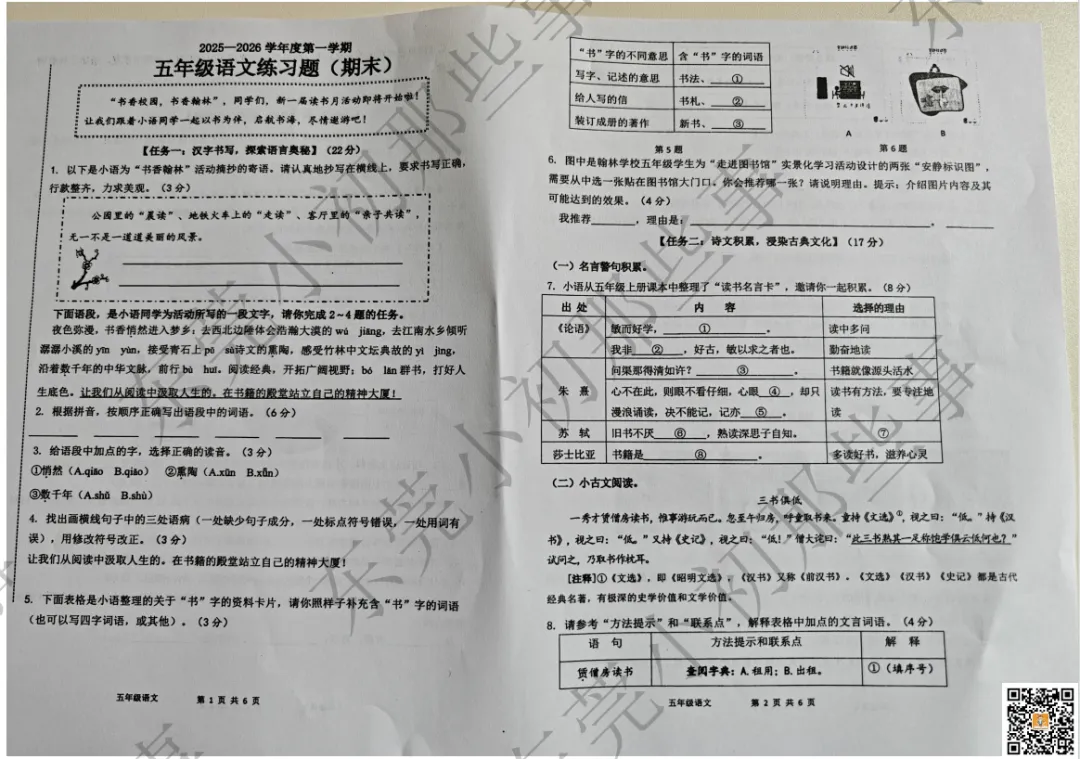 2025—2026 学年度第一学期
五年级语文练习题（期末）
“书香校园，书香翰林”，同学们，新一届读书月活动即将开始啦！
让我们跟着小语同学一起以书为伴，启航书海，尽情遨游吧！
【任务一：汉字书写，探索语言奥秘】（22 分）
1. 以下是小语为“书香翰林”活动摘抄的寄语。请认真地抄写在横线上，要求书写正确，
行款整齐，力求美观。（3 分）
公园里的“晨读”、地铁火车上的“走读”、客厅里的“亲子共读”，
无一不是一道道美丽的风景。
下面语段，是小语同学为活动所写的一段文字，请你完成 2～4 题的任务。
夜色弥漫，书香悄然进入梦乡：去西北边陲体会浩瀚大漠的 wú jiāng，去江南水乡倾听
潺潺小溪的 yīn yùn，接受青石上 pū sù 诗文的熏陶，感受竹林中文坛典故的 yì jìng，
沿着数千年的中华文脉，前行 bù huǐ。阅读经典，开拓广阔视野；bó lǎn 群书，打好人
生底色。让我们从阅读中汲取人生的。在书籍的殿堂站立自己的精神大厦！
2. 根据拼音，按顺序正确写出语段中的词语。（6 分）
3. 给语段中加点的字，选择正确的读音。（3 分）
①悄然（A.qiāo B.qiǎo） ②熏陶（A.xūn B.xǖn）
③数千年（A.shǔ B.shù）
4. 找出画横线句子中的三处语病（一处缺少句子成分，一处标点符号错误，一处用词有
误），用修改符号改正。（3 分）
让我们从阅读中汲取人生的。在书籍的殿堂站立自己的精神大厦！
5. 下面表格是小语整理的关于“书”字的资料卡片，请你照样子补充含“书”字的词语
（也可以写四字词语，或其他）。（3 分）
五年级语文 第 1 页 共 6 页
“书”字的不同意思 含“书”字的词语
写字、记述的意思 书法、①
给人写的信 书札、②
装订成册的著作 新书、③
A
B
第 5 题 第 6 题
6. 图中是翰林学校五年级学生为“走进图书馆”实景化学习活动设计的两张“安静标识图”，
需要从中选一张贴在图书馆大门口。你会推荐哪一张？请说明理由。提示：介绍图片内容及其
可能达到的效果。（4 分）
我推荐______，理由是：______。
【任务二：诗文积累，浸染古典文化】（17 分）
（一）名言警句积累。
7. 小语从五年级上册课本中整理了“读书名言卡”，邀请你一起积累。（8 分）
出 处 内 容 选择的理由
《论语》 敏而好学，①。 读中多问
我非②，好古，敏以求之者也。 勤奋地读
朱 熹 问渠那得清如许？③。 书籍就像源头活水
心不在此，则眼不看仔细，心眼④，却只 读书有方法，要专注地
漫浪诵读，决不能记，记亦⑤。 读
苏 轼 旧书不厌⑥，熟读深思子自知。 ⑦
莎士比亚 书籍是⑧。 多读好书，滋养心灵
（二）小古文阅读。
三书俱低
一秀才赁僧房读书，惟事游玩而已。忽至午归房，呼童取书来。童持《文选》①，视之曰：“低。”持《汉
书》，视之曰：“低。”又持《史记》，视之曰：“低！”僧大诧曰：“此三书熟其一足称饱学俱云低何也？”
试问之，乃取书作枕耳。
[注释]①《文选》，即《昭明文选》，《汉书》又称《前汉书》。《文选》《汉书》《史记》都是古代
经典名著，有极深的史学价值和文学价值。
8. 请参考“方法提示”和“联系点”，解释表格中加点的文言词语。（4 分）
语 句 方法提示和联系点 解 释
赁僧房读书 查阅字典：A. 租用；B. 出租。 ①（填序号）
五年级语文 第 2 页 共 6 页
东莞小初那些事
东莞小初那些事